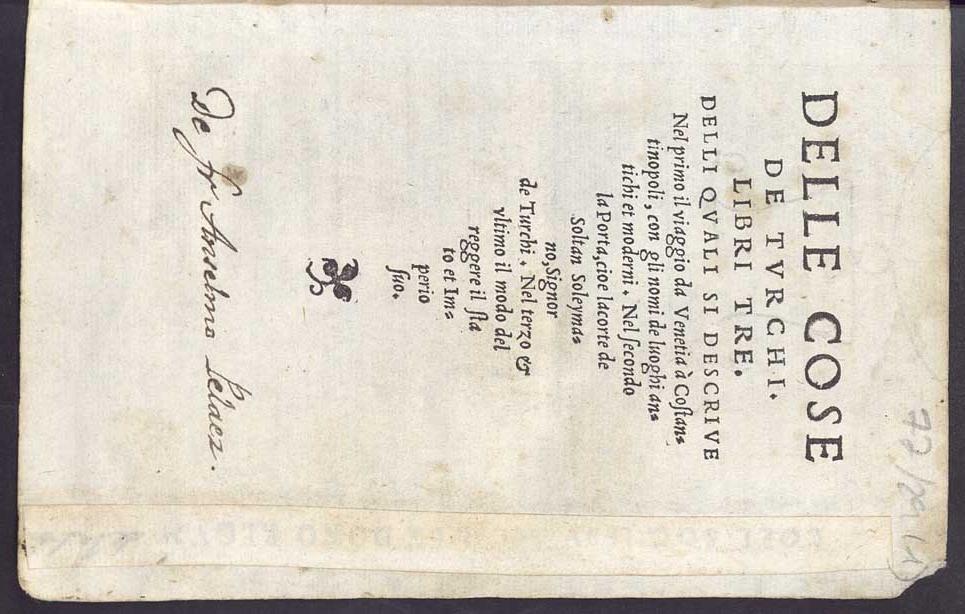 DELLE COSE
DE TVRCHI.
LIBRI TRE.
DELLI QVALI SI DESCRIVE
Nel primo il viaggio da Venetia à Coſtan⸗
tinopoli, con gli nomi de luoghi an⸗
tichi et moderni. Nel ſecondo
la Porta, cioe la corte de
Soltan Soleyma⸗
no, Signor
de Turchi. Nel terzo &
vltimo il modo del
reggere il ſta
to et Im⸗
perio
ſuo.
De fr Anselmo Pelaez.